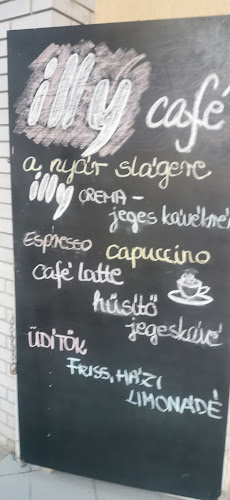 illy café
a nyár slágere
illy CREMA -
jeges kávékrém
ESPRESSO capuccino
café latte
hűsítő
jegeskávé
ÜDÍTŐK
FRISS, HÁZI
LIMONÁDÉ